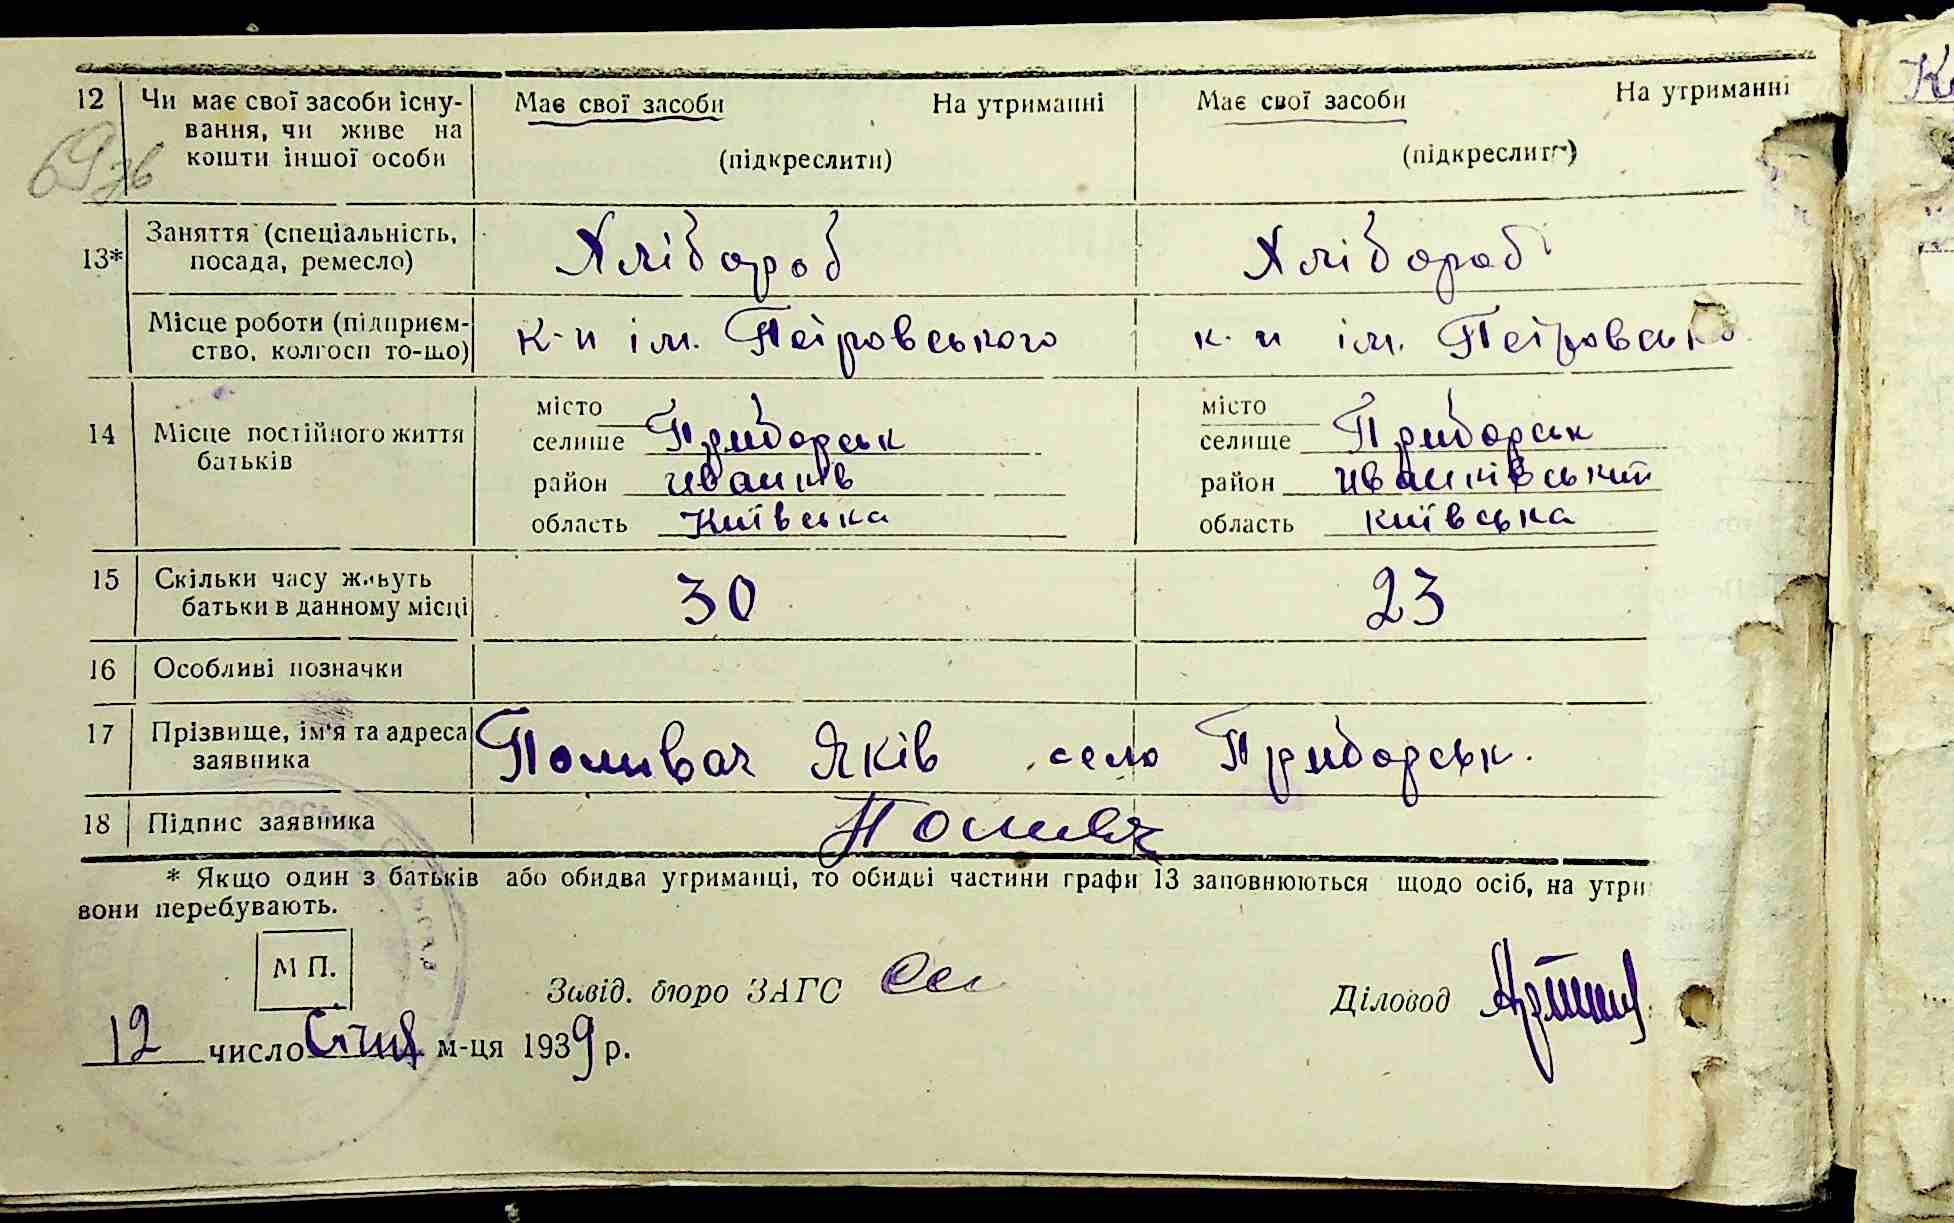 12 Чи має свої засоби існу- Має свої засоби На утриманні Має свої засоби На утриманні
вання, чи живе на
кошти іншої особи (підкреслити) (підкреслити)
69 зв
13* Заняття (спеціальність, Хлібороб Хлібороб
посада, ремесло)
Місце роботи (підприєм- к-п ім. Петровського к-п ім. Петровсько
ство, колгосп то-що)
14 Місце постійного життя місто місто
батьків селище Приборськ селище Приборськ
район Иванків район Иванківський
область Київська область Київська
15 Скільки часу живуть 30 23
батьки в данному місці
16 Особливі позначки
17 Прізвище, ім'я та адреса Поливач Яків село Приборськ.
заявника
18 Підпис заявника Поливач
* Якщо один з батьків або обидва утриманці, то обидві частини графи 13 заповнюються щодо осіб, на утри
вони перебувають.
М П.
Завід. бюро ЗАГС Діловод
12 число Січня м-ця 1939 р.